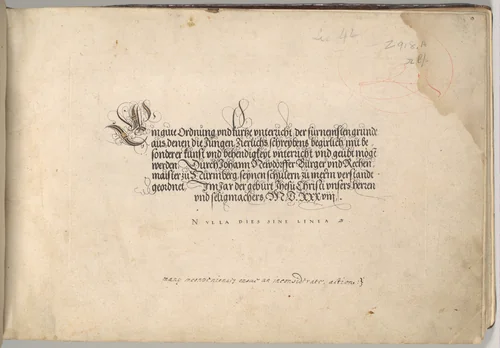 Ein gute Ordnung und kurtze unterricht der fürnemsten gründe
aus denen die Jungen Zierlichs schreybens begirlich mit be
sonderer kunst und behendigkeyt unterricht und geübt mögē
werden Durch Johann Neudörffer Burger und Rechen
maister zu Nürmberg seynen schulern zu mererm verstandt
geordnet Im Jar der geburt Jhesu Christi unsers herren
und seligmachers M.D.XXXviii.
NVLLA DIES SINE LINEA